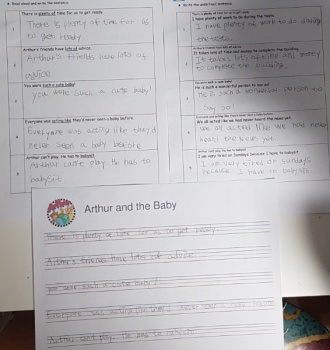 Read aloud and write the sentence.
There is plenty of time for us to get ready.
1
There is plenty of time for us
to get ready
Arthur's friends have lots of advice.
2
Arthur's friends have lots of
advice
You were such a cute baby!
3
you were such a cute baby!
Everyone was acting like they'd never seen a baby before.
4
Everyone was acting like they'd
never seen a baby before
Arthur can't play. He has to babysit.
5
Arthur can't play. He has to
babysit
There is plenty of time for us to get ready.
I have plenty of work to do during the tests.
1
I have plenty of work to do during
the tests.
Arthur's friends have lots of advice.
It takes lots of time and money to complete the building.
2
It takes lots of time and money
to complete the building.
You were such a cute baby!
He is such a wonderful person to say so!
3
He is such a wonderful person to
say so!
Everyone was acting like they'd never seen a baby before.
We all acted like we had never heard the news yet.
4
We all acted like we had never
heard the news yet.
Arthur can't play. He has to babysit.
I am very tired on Sundays because I have to babysit.
5
I am very tired on Sundays
because I have to babysit.
Arthur and the Baby
There is plenty of time for us to get ready
Arthur's friends have lots of advice
you were such a cute baby!
Everyone was acting like they'd never seen a baby before